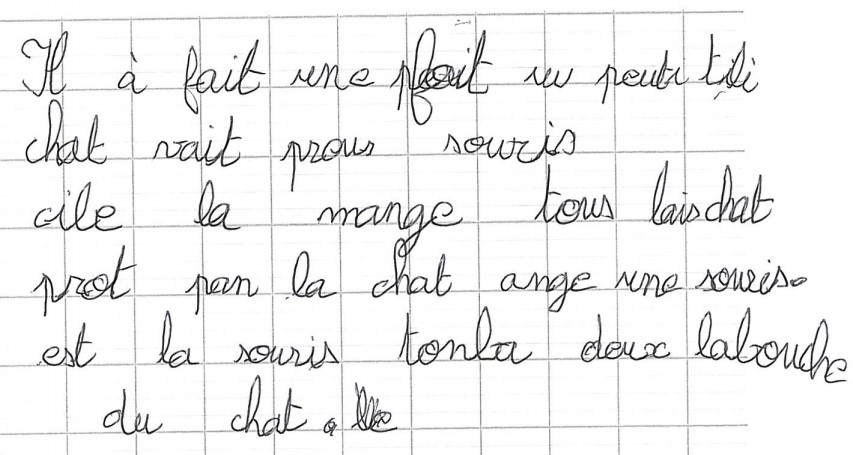 Il à fait une fait un peuti tili
chat vait prous souris
cile la mange tous lais chat
prot pan la chat ange une souris.
est la souris tonba deux labouche
du chat.